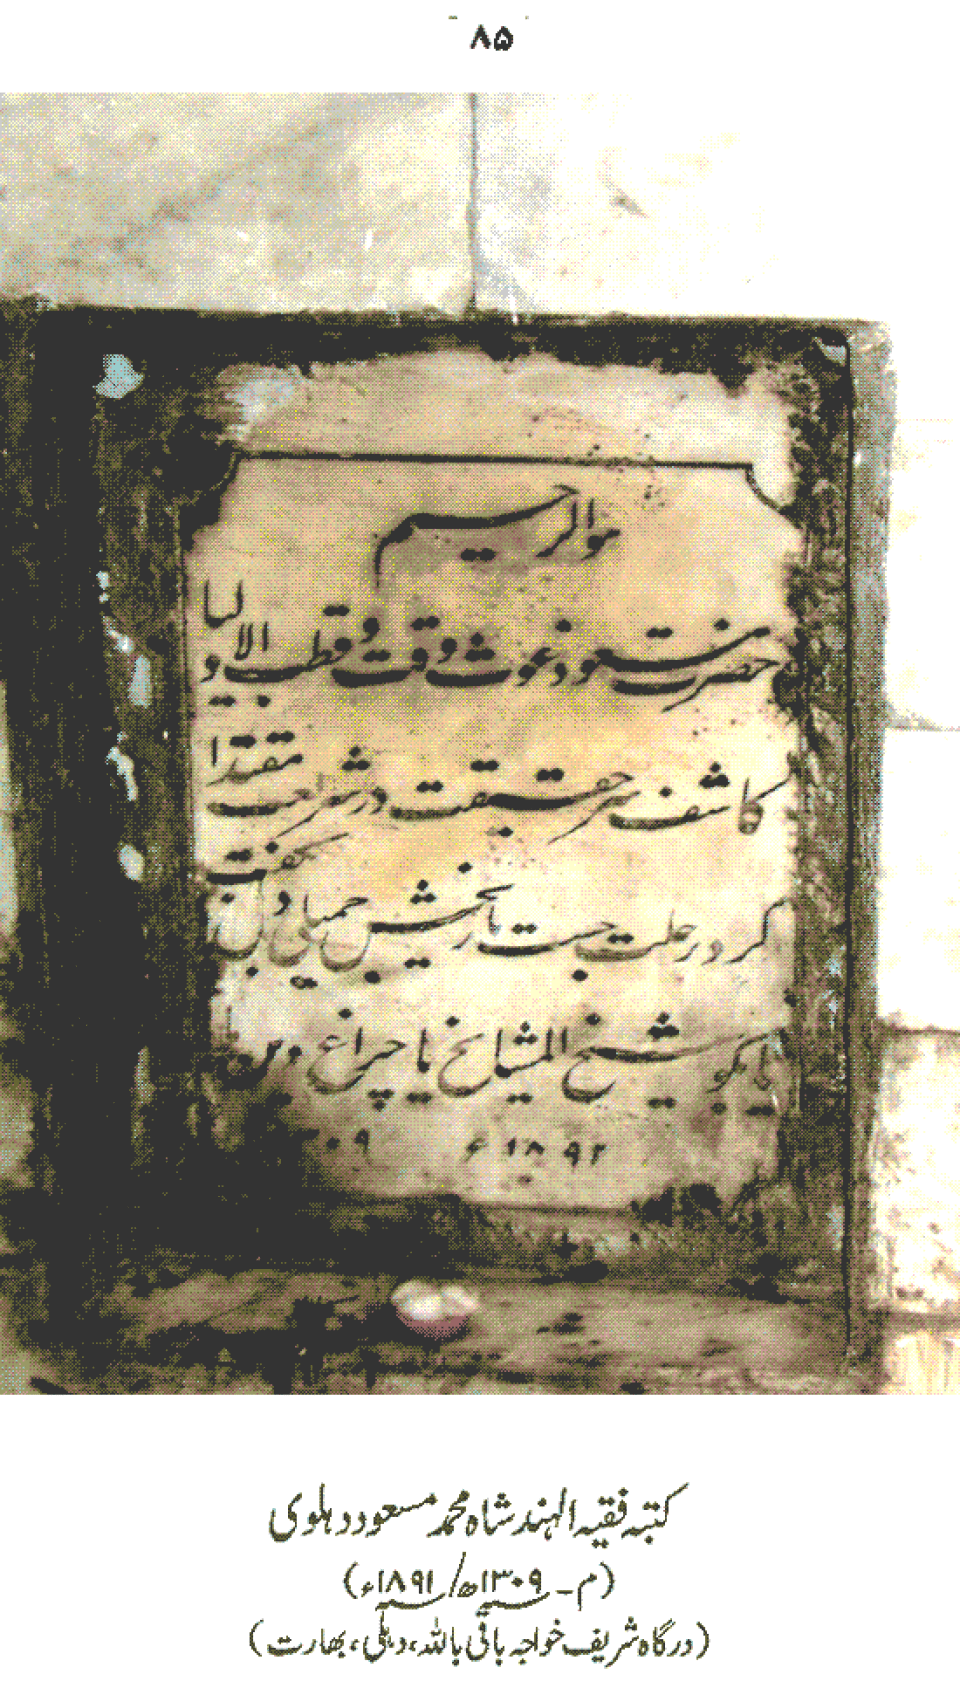 ۸۵
هو الرحیم
حضرت مسعود غوث وقت و قطب الاولیا
کاشف سر حقیقت در شریعت مقتدا
کرد رحلت جست تاریخش چمیاں دل بگفت
یا بگو شیخ المشایخ یا چراغ دین
۱۸۹۲ء ۰۹
کتبہ فقیہ الہند شاہ محمد مسعود دہلوی
(م ـ ۱۳۰۹ھ/۱۸۹۱ء)
(درگاہ شریف خواجہ باقی باللہ، دہلی، بھارت)